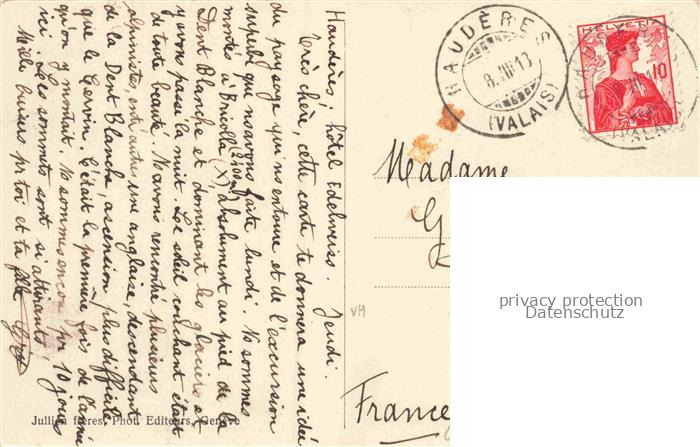 Haudères, hôtel Edelweiss. Jeudi.
Très chère, cette carte te donnera une idée
du paysage qui ns entoure et de l'excursion
superbe que ns avons faite lundi. Ns sommes
montés à Bricolla (X) absolument au pied de la
(2400m)
Dent Blanche et dominant les glaciers et
y avons passé la nuit. Le soleil couchant était
de toute beauté. Ns avons rencontré plusieurs
alpinistes, entr'autres une anglaise, descendant
de la Dent Blanche, ascension plus difficile
que le Cervin. C'était la première fois de l'année
qu'on y montait. Ns sommes encore pr 10 jours
ici. Les sommets sont si attirants!
Mille baisers pr toi et ta fille
Jullien frères, Phot. Editeurs, Genève
HAUDÈRES
8.VIII.13
(VALAIS)
HELVETIA
10
(VALAIS)
Madame
G
France
VH
privacy protection
Datenschutz